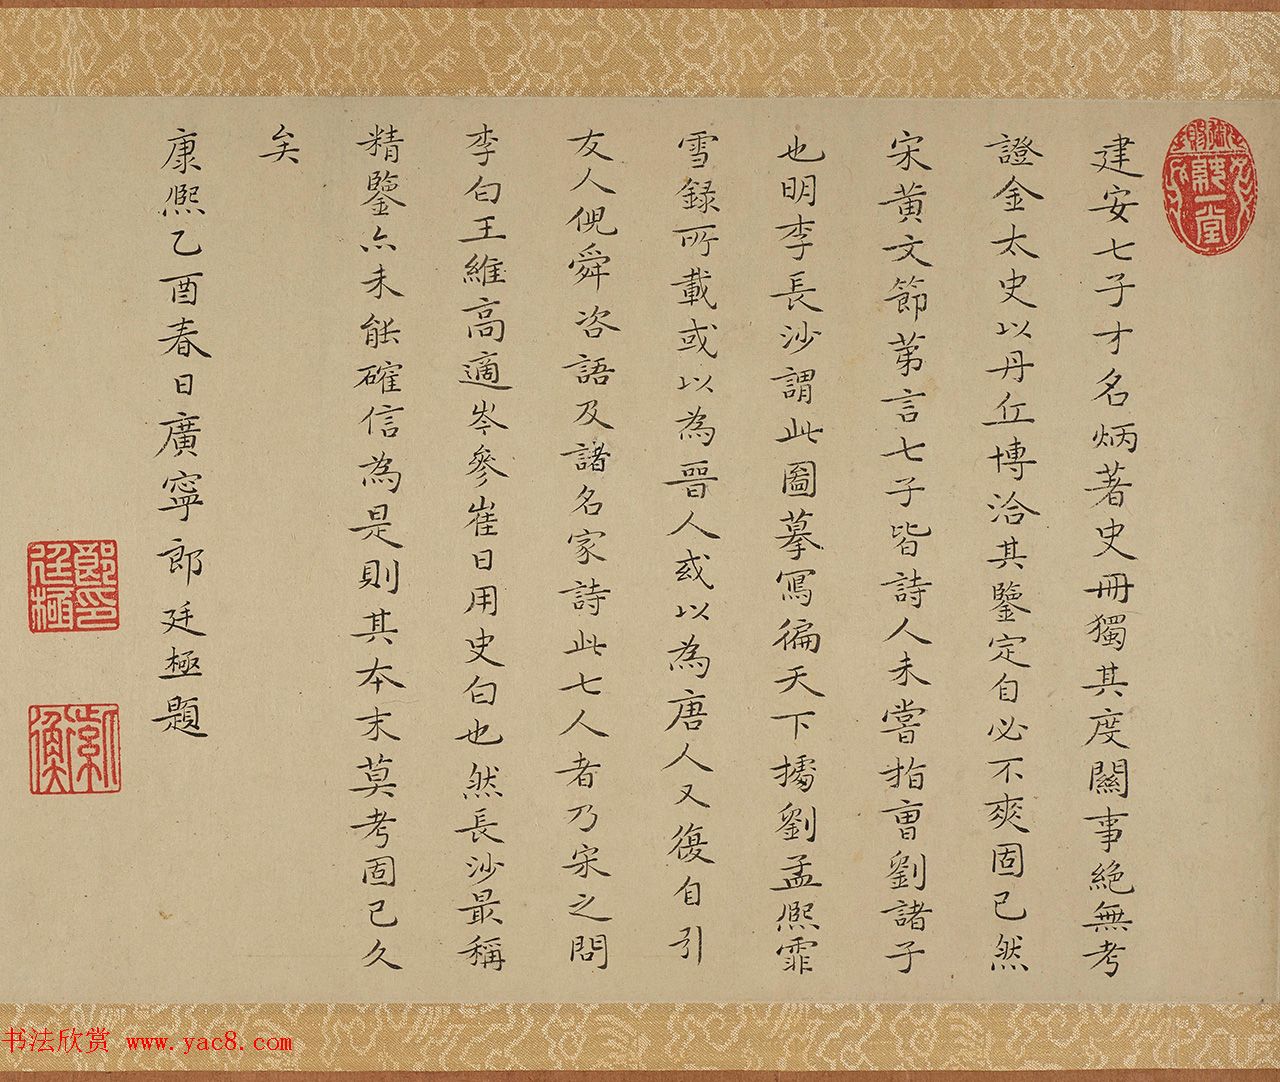 建安七子才名炳著史冊獨其度關事絕無考
證金太史以丹丘博洽其鑒定自必不爽固已然
宋黃文節第言七子皆詩人未嘗指曹劉諸子
也明李長沙謂此圖摹寫徧天下據劉孟熙霏
雪録所載或以為晉人或以為唐人又復自引
友人倪舜咨語及諸名家詩此七人者乃宋之問
李白王維高適岑參崔日用史白也然長沙最稱
精鑒亦未能確信為是則其本末莫考固已久
矣
康熙乙酉春日廣寧郎廷極題
郎印廷極
紫衡
書法欣賞 www.yac8.com